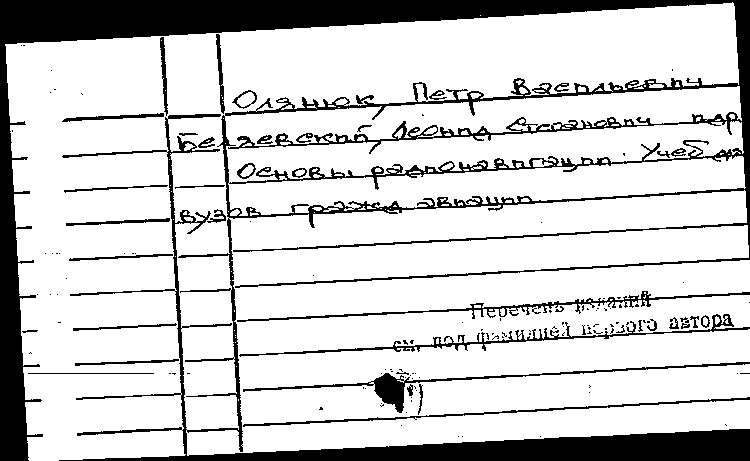 Олянюк, Петр Васильевич
Белявский, Леонид Степанович и др.
Основы радионавигации: Учеб для
вузов гражд авиации
Перечень изданий
см. под фамилией первого автора